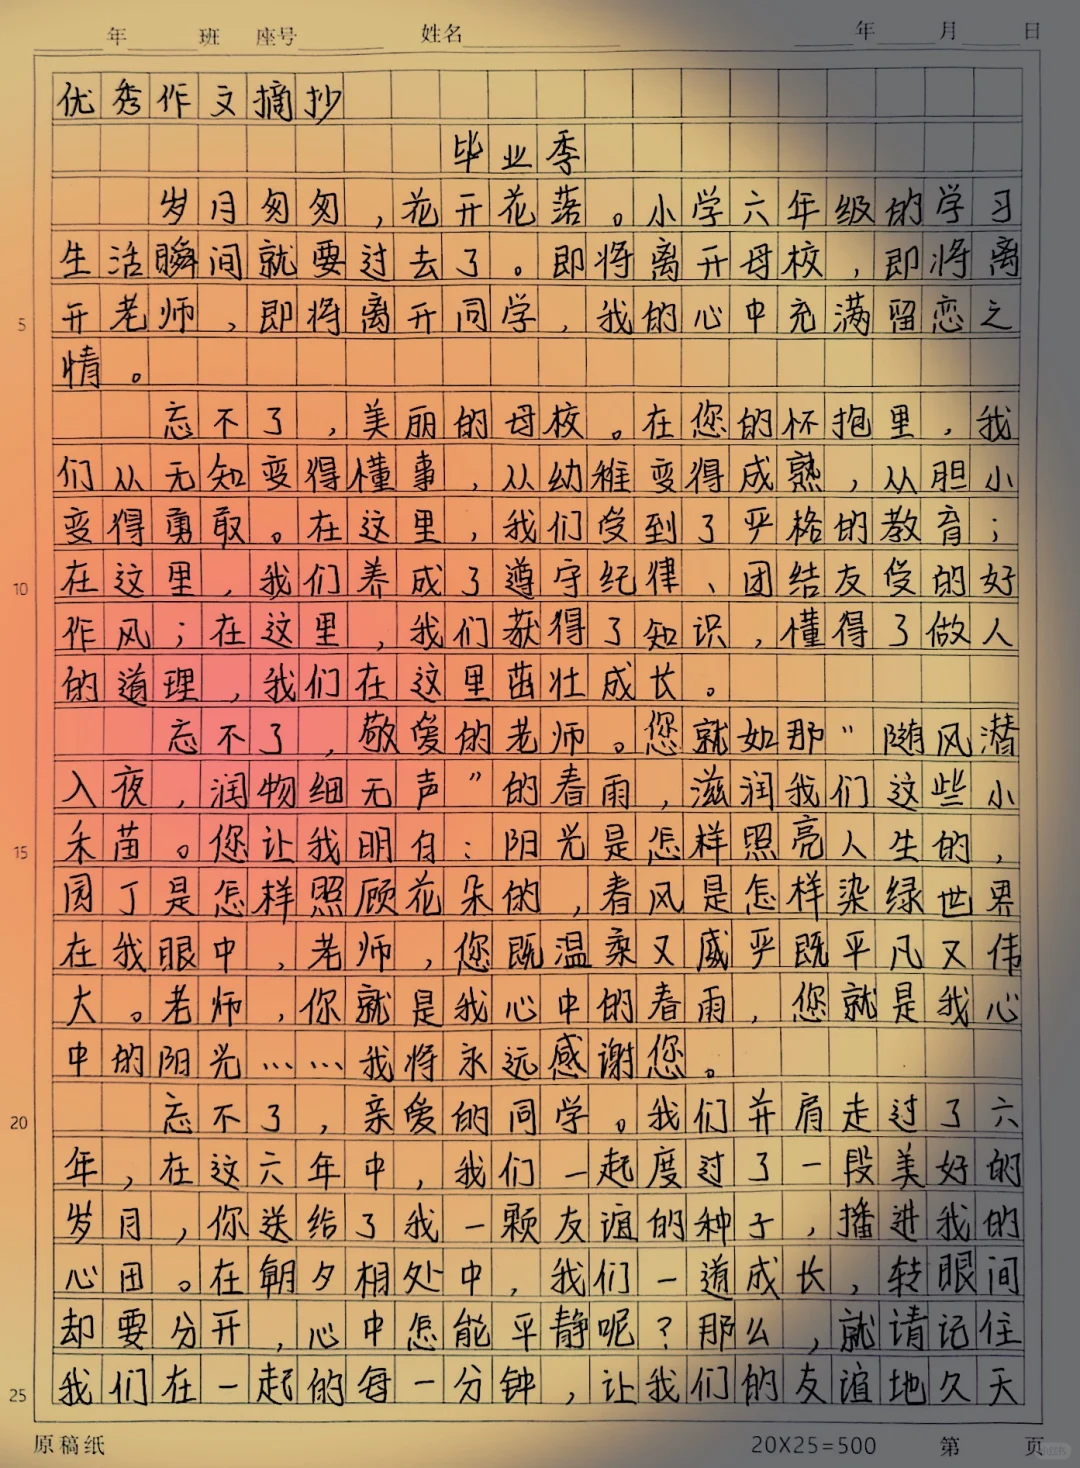 年 班 座号 姓名 年 月 日
优秀作文摘抄
毕业季
岁月匆匆，花开花落。小学六年级的学习
生活瞬间就要过去了。即将离开母校，即将离
5 开老师，即将离开同学，我的心中充满留恋之
情。
忘不了，美丽的母校。在您的怀抱里，我
们从无知变得懂事，从幼稚变得成熟，从胆小
变得勇敢。在这里，我们受到了严格的教育；
10 在这里，我们养成了遵守纪律、团结友爱的好
作风；在这里，我们获得了知识，懂得了做人
的道理，我们在这里茁壮成长。
忘不了，敬爱的老师。您就如那“随风潜
入夜，润物细无声”的春雨，滋润我们这些小
15 禾苗。您让我明白：阳光是怎样照亮人生的，
园丁是怎样照顾花朵的，春风是怎样染绿世界
在我眼中，老师，您既温柔又威严既平凡又伟
大。老师，你就是我心中的春雨，您就是我心
中的阳光……我将永远感谢您。
20 忘不了，亲爱的同学。我们并肩走过了六
年，在这六年中，我们一起度过了一段美好的
岁月，你送给了我一颗友谊的种子，播进我的
心田。在朝夕相处中，我们一道成长，转眼间
却要分开，心中怎能平静呢？那么，就请记住
25 我们在一起的每一分钟，让我们的友谊地久天
原稿纸 20X25=500 第 页